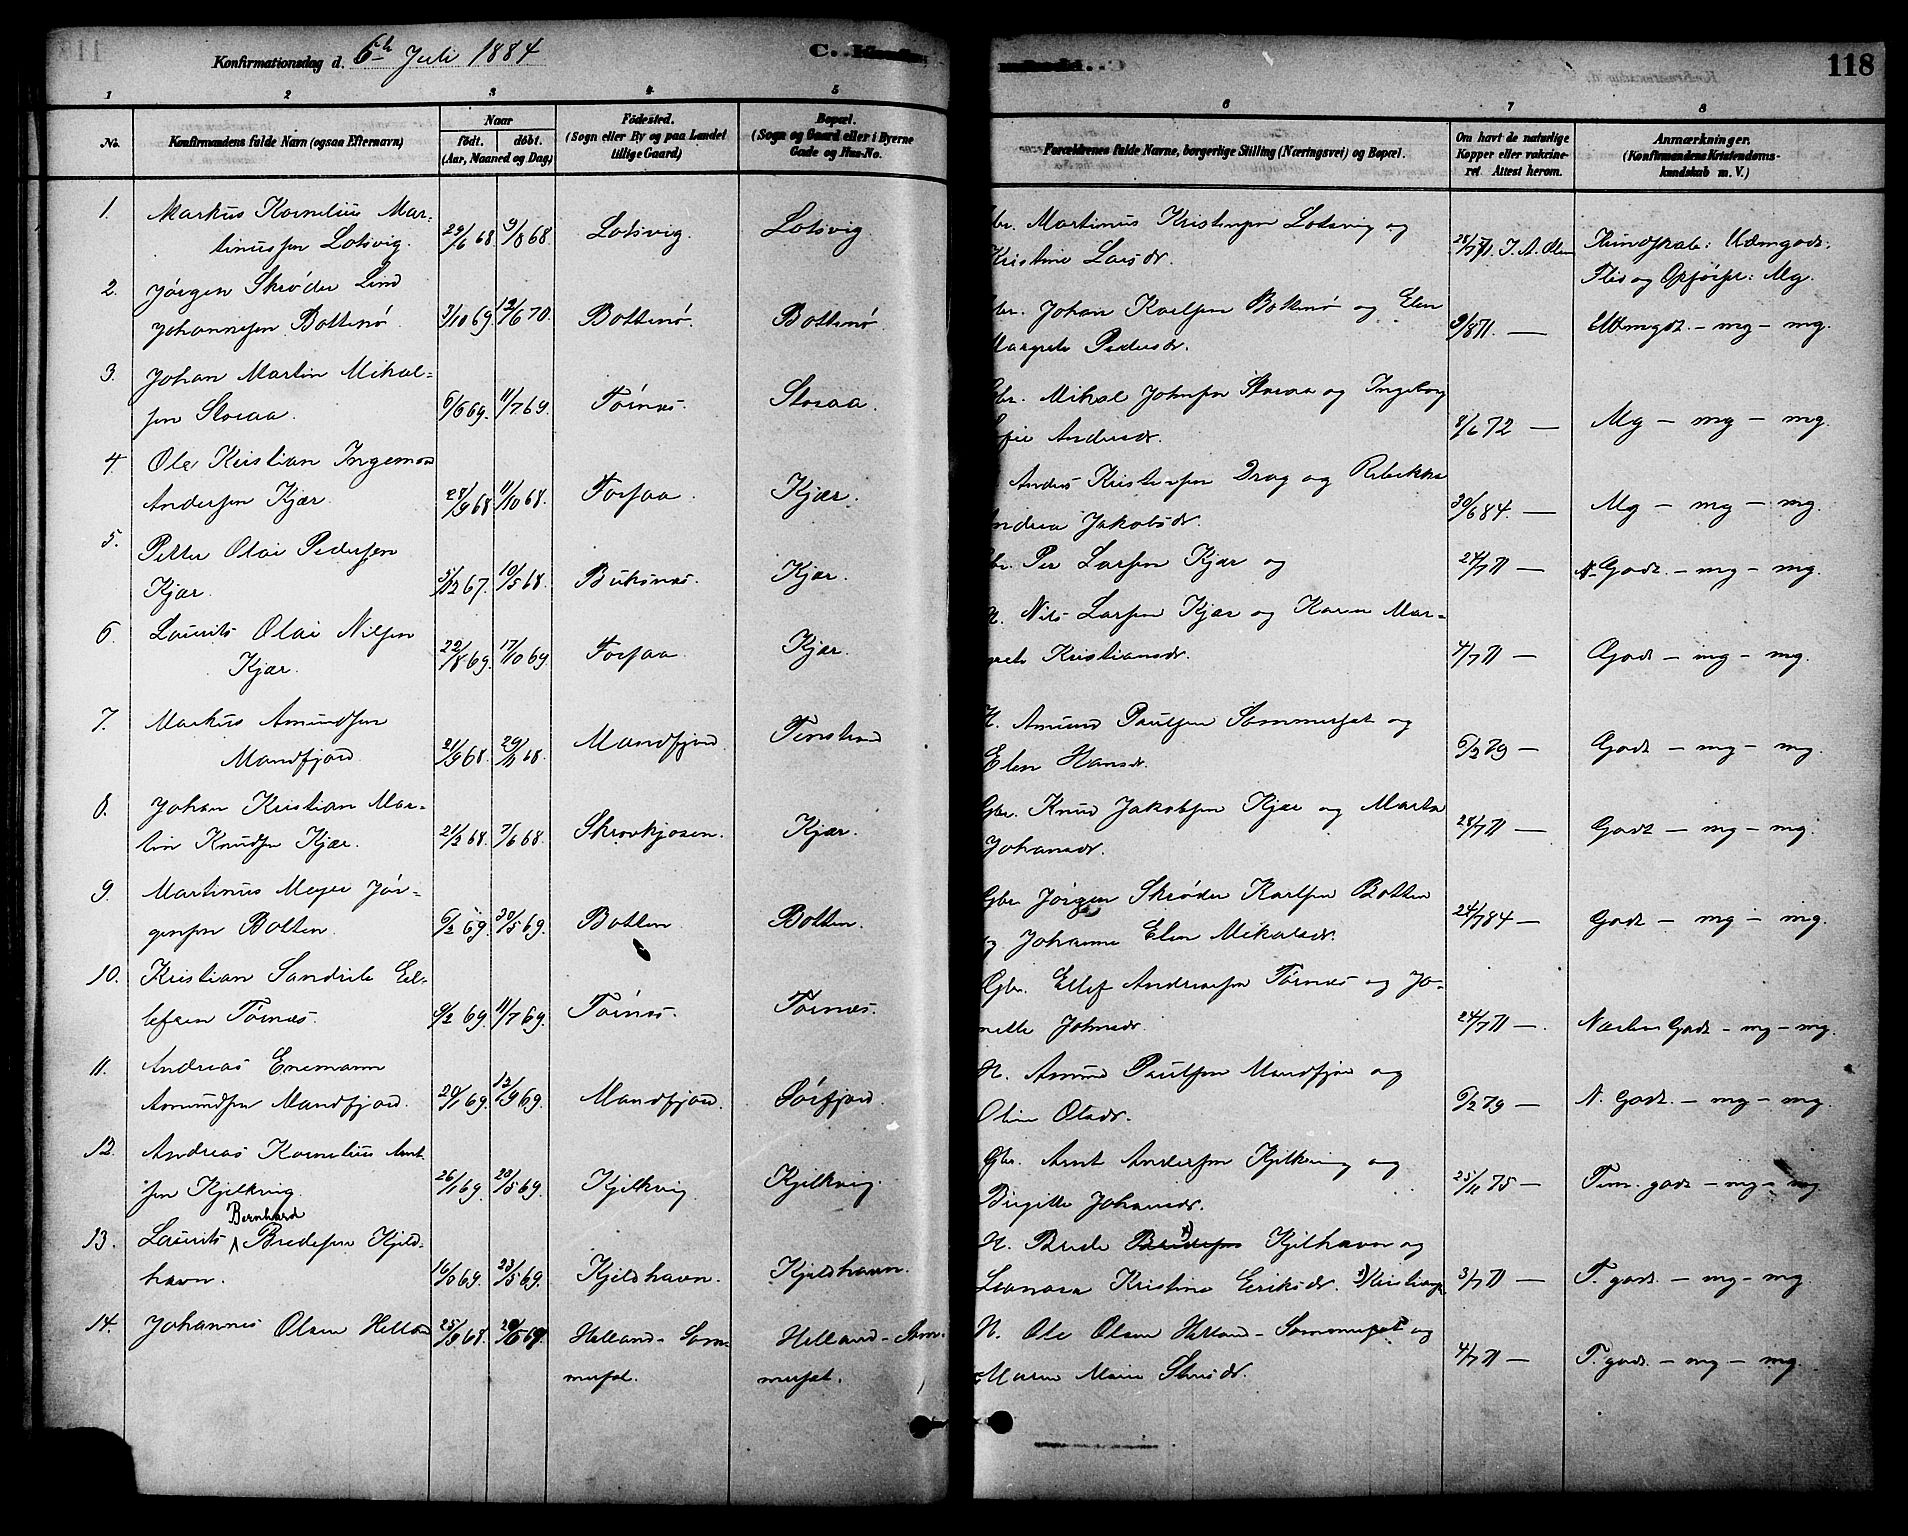 Konfirmationsdag d. 6te Juli 1884
118
1 2 3 4 5 6 7 8
No.
Konfirmandens fulde Navn (ogsaa Efternavn)
Naar
født. døbt.
(Aar, Maaned og Dag.)
Fødested.
(Sogn eller By og paa Landet
tillige Gaard)
Bopæl.
(Sogn og Gaard eller i Byerne
Gade og Hus-No.
Forældrenes fulde Navne, borgerlige Stilling (Næringsvei) og Bopæl.
Om havt de naturlige
Kopper eller vakcine-
ret. Attest herom.
Anmærkninger.
(Konfirmandens Kristendoms-
kundskab m. V.)
1. Markus Kornelius Mar-
tinussen Lotsvig. 29/6 68 9/8 68. Lotsvig. Lotsvig.
Gbr. Martinus Kristensen Lotsvig og
Kristine Larsdr. 28/7 71. J. A. Olsen Kundskab: Udmgodt.
Flid og Opførsel: Mg.
2. Jørgen Skrøder Lind
Johannesen Bottenø. 3/10 69. 12/6 70. Bottenø. Bottenø.
Gbr. Johan Karlsen Bottenø og Elen
Margrete Pedersdr. 3/8 71. — Udmgdt. – mg – mg.
3. Johan Martin Mikal-
sen Storaa. 6/6 69. 11/7 69. Tørnæs. Storaa.
Gbr. Mikal Johnsen Storaa og Ingeborg
Sofie Andersdr. 8/6 72 — Mg – mg – mg.
4. Ole Kristian Ingemar
Andersen Kjær. 28/9 68 11/10 68. Forsaa. Kjær.
Anders Kristensen Drag og Rebekka
Andrea Jakobsdr. 30/6 84. — Mg – mg – mg.
5. Petter Olai Pedersen
Kjær. 5/12 67. 10/5 68. Buksnæs. Kjær.
Gbr. Per Larsen Kjær og
24/7 71 — N. Godt. – mg – mg.
6. Laurits Olai Nilsen
Kjær. 22/8 69. 17/10 69 Forsaa. Kjær.
H. Nils Larsen Kjær og Karen Mar-
grete Kristiansdr. 4/7 71 — Godt – mg – mg.
7. Markus Amundsen
Mandfjord 21/9 68. 29/11 68. Mandfjord. Finstad
H. Amund Paulsen Sommerset og
Elen Hansdr. 6/2 79 — Godt – mg – mg.
8. Johan Kristian Mar-
tin Knudsen Kjær. 21/2 68. 7/6 68. Skrovkjosen. Kjær.
Gbr. Knud Jakobsen Kjær og Marta
Johansdr. 28/7 71 — Godt – mg – mg.
9. Martinus Meyer Jør-
gensen Botten. 6/2 69. 30/5 69. Botten. Botten.
Gbr. Jørgen Skrøder Karlsen Botten
og Johanna Elen Mikalsdr. 24/7 84 — Godt – mg – mg.
10. Kristian Sandrite Eil-
efsen Tørnæs. 9/2 69. 11/7 69. Tørnæs. Tørnæs.
Gbr. Eilef Andreassen Tørnæs og Jo-
nette Johnsdr. 24/7 71 —. Næsten Godt – mg – mg.
11. Andreas Enemann
Amundsen Mandfjord. 24/1 69. 12/9 69. Mandfjord. Sørfjord.
H. Amund Paulsen Mandfjord og
Oline Olsdr. 6/2 79 — N. Godt. – mg – mg.
12. Andreas Kornelius Arnt-
sen Kjelkvig. 26/1 69. 23/5 69. Kjelkvig. Kjelkvig.
Gbr. Arnt Andersen Kjelkvig og
Birgitte Johansdr. 25/11 75 — Tem. godt – mg – mg
13. Laurits Bernhard Bredesen Kjeld-
havn. 16/1 69. 23/5 69. Kjeldhavn. Kjeldhavn.
H. Brede Bredesen x) Kjelhavn og
Leonora Kristine Eriksdr. x) Kristians 3/7 71 — T. godt. – mg – mg.
14. Johannes Olsen Helland 25/9 68. Helland-Som-
merset. Helland-Som-
merset.
H. Ole Olsen Helland-Sommerset og
Maren Marie 4/7 71 — T. godt. – mg – mg.